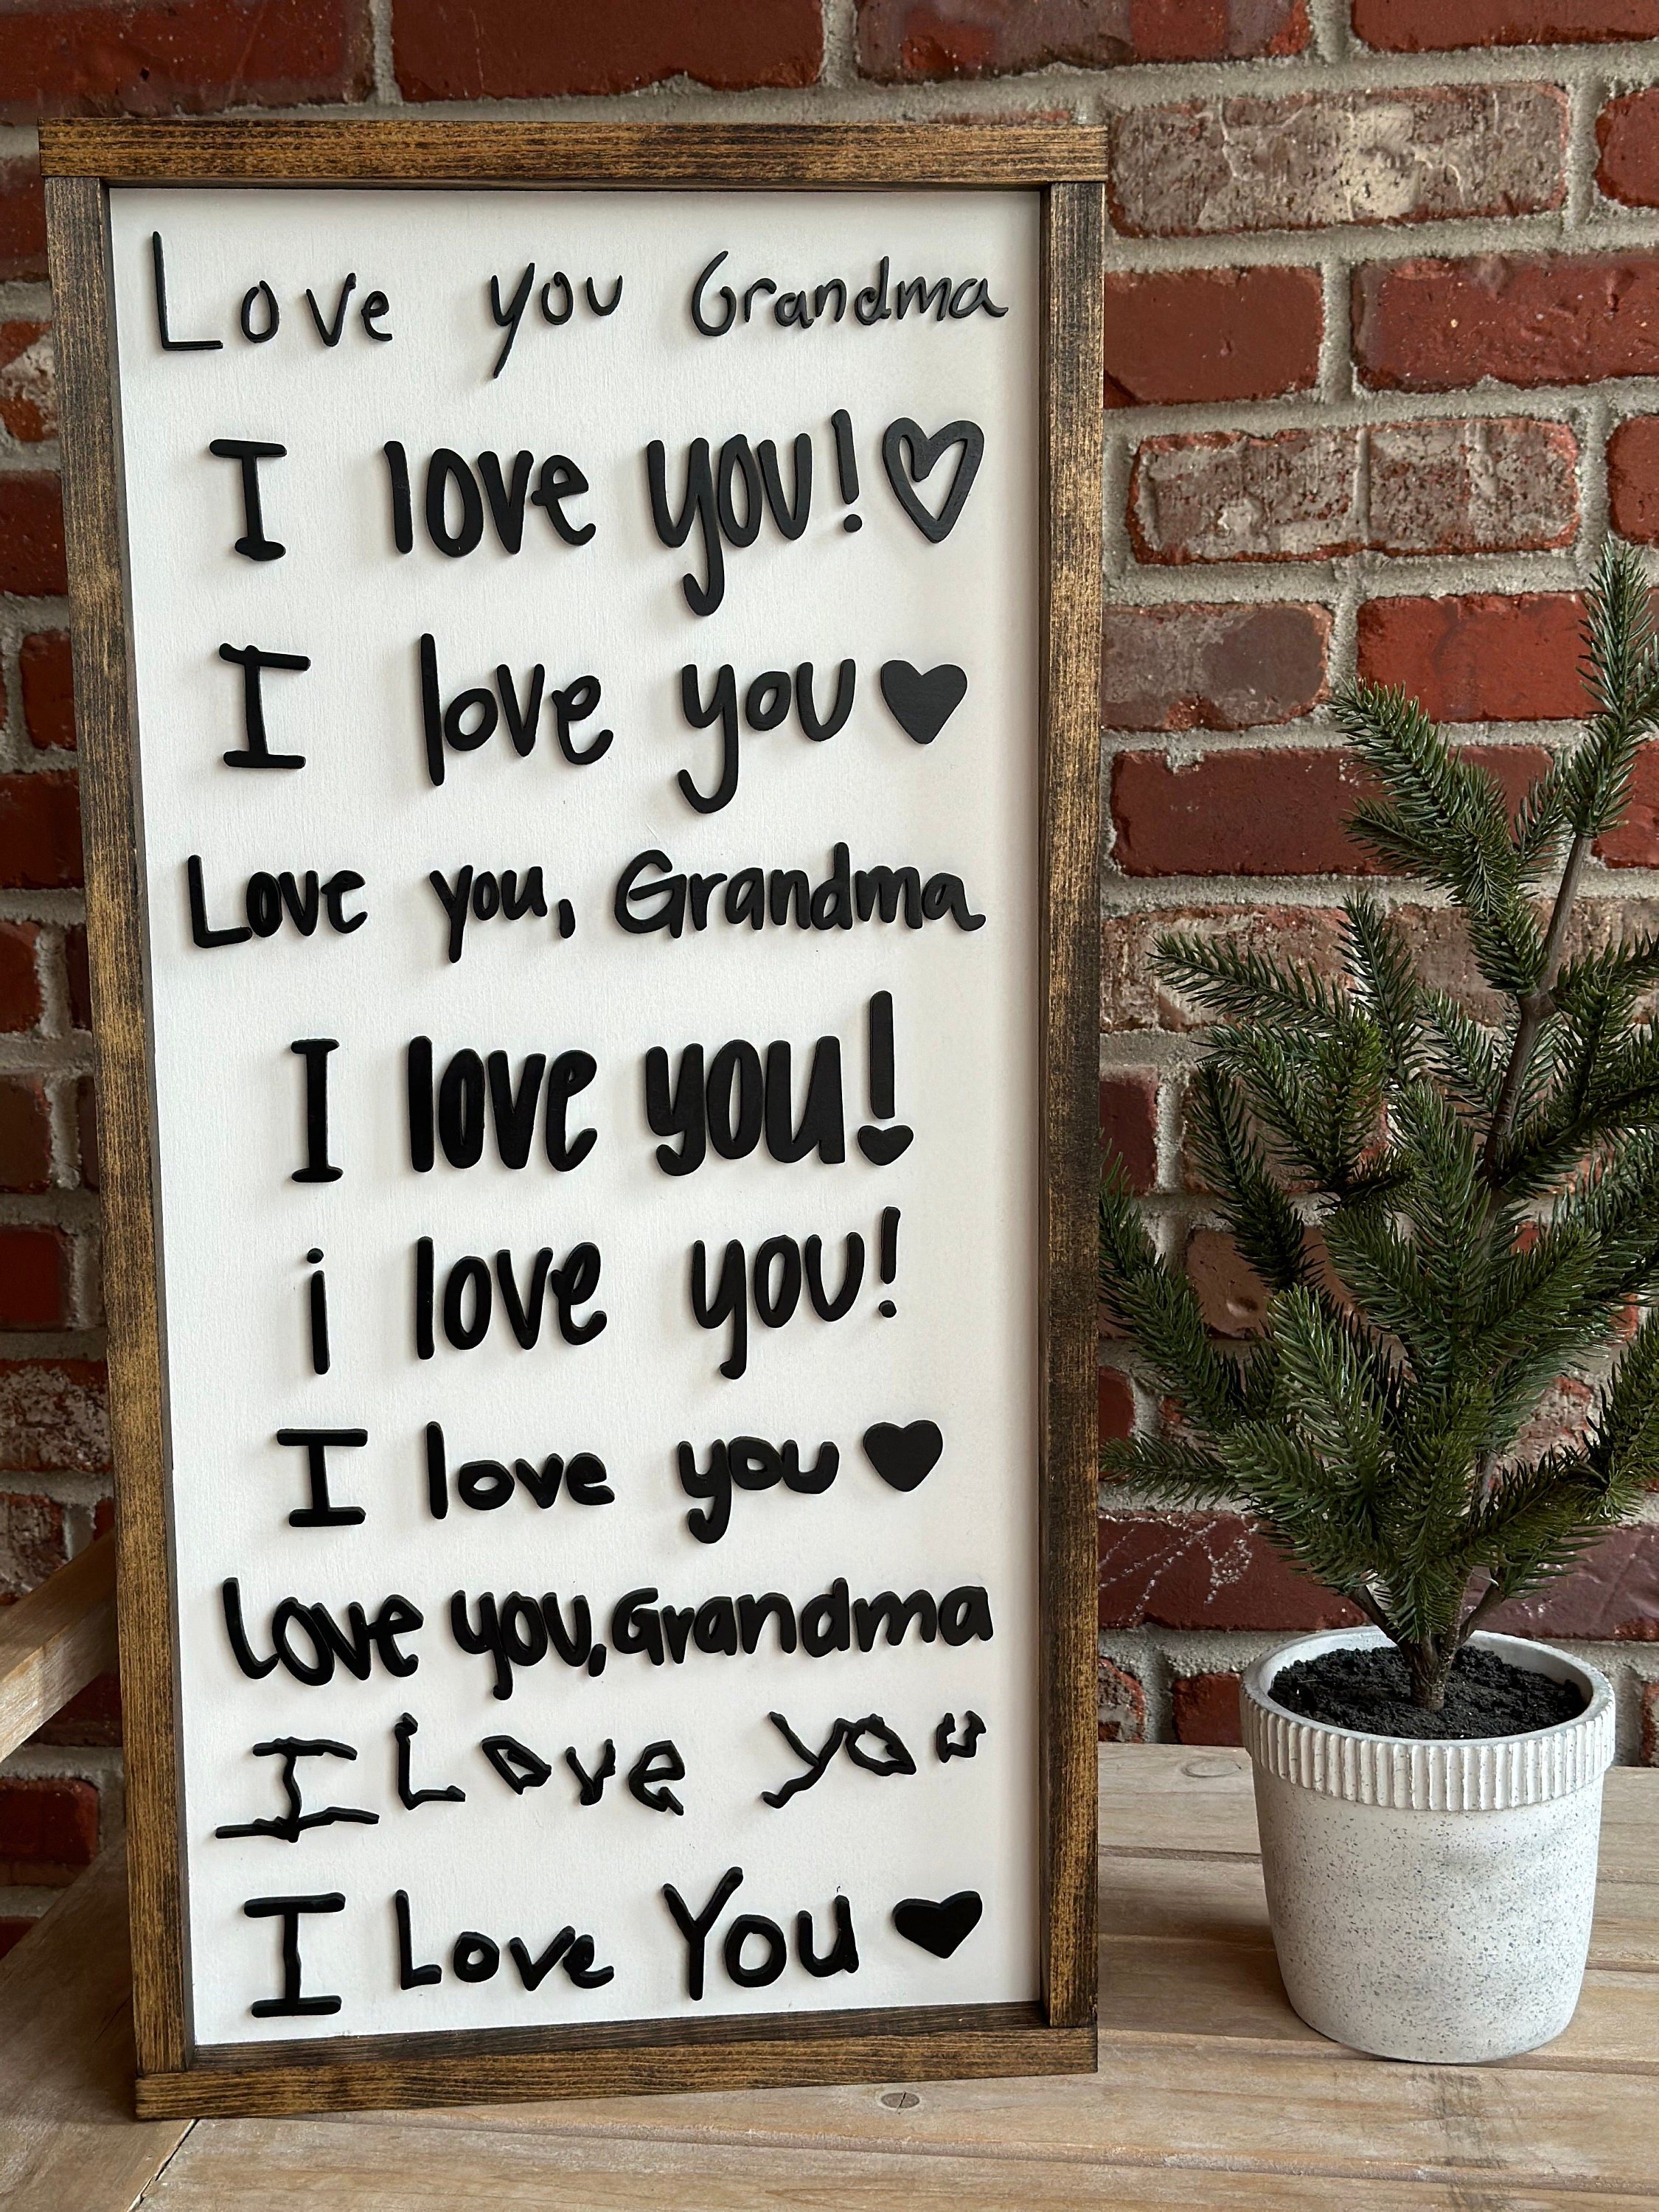 Love you Grandma
I love you! ♡
I love you ♥
Love you, Grandma
I love you!
i love you!
I love you ♥
Love you, Grandma
I Love you
I Love You ♥